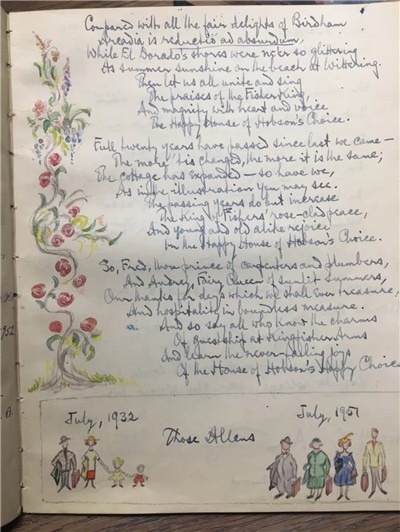 Compared with all the fair delights of Birdham
Arcadia is reductio ad absurdum,
While El Dorado's shores were ne'er so glittering
As summer sunshine on the beach at Wittering.
Then let us all unite and sing
The praises of the Fisher King,
And magnify with heart and voice
The Happy House of Hobson's Choice.
Full twenty years have passed since last we came—
The more 'tis changed, the more it is the same;
The cottage has expanded — so have we,
As in the illustration you may see.
The passing years do but increase
The King Fishers' rose-clad peace,
And young and old alike rejoice
In the Happy House of Hobson's Choice.
So, Fred, thou prince of carpenters and plumbers,
And Audrey, Fairy Queen of sunlit summers,
Our thanks for days which we shall ever treasure,
And hospitality in boundless measure.
And so say all who know the charms
Of guestship at Kingfisher Arms
And learn the never-failing joys
Of the House of Hobson's Happy Choice
July, 1932
July, 1951
Those Allens
1952